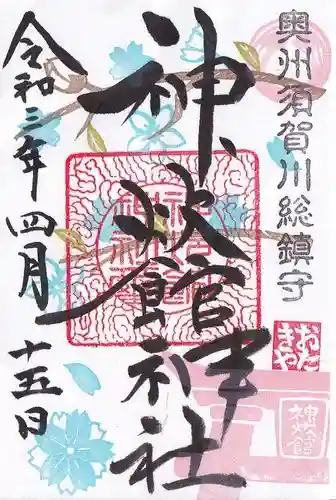 奥州須賀川総鎮守
神炊館神社
令和三年四月十五日
おた
きや
神炊館